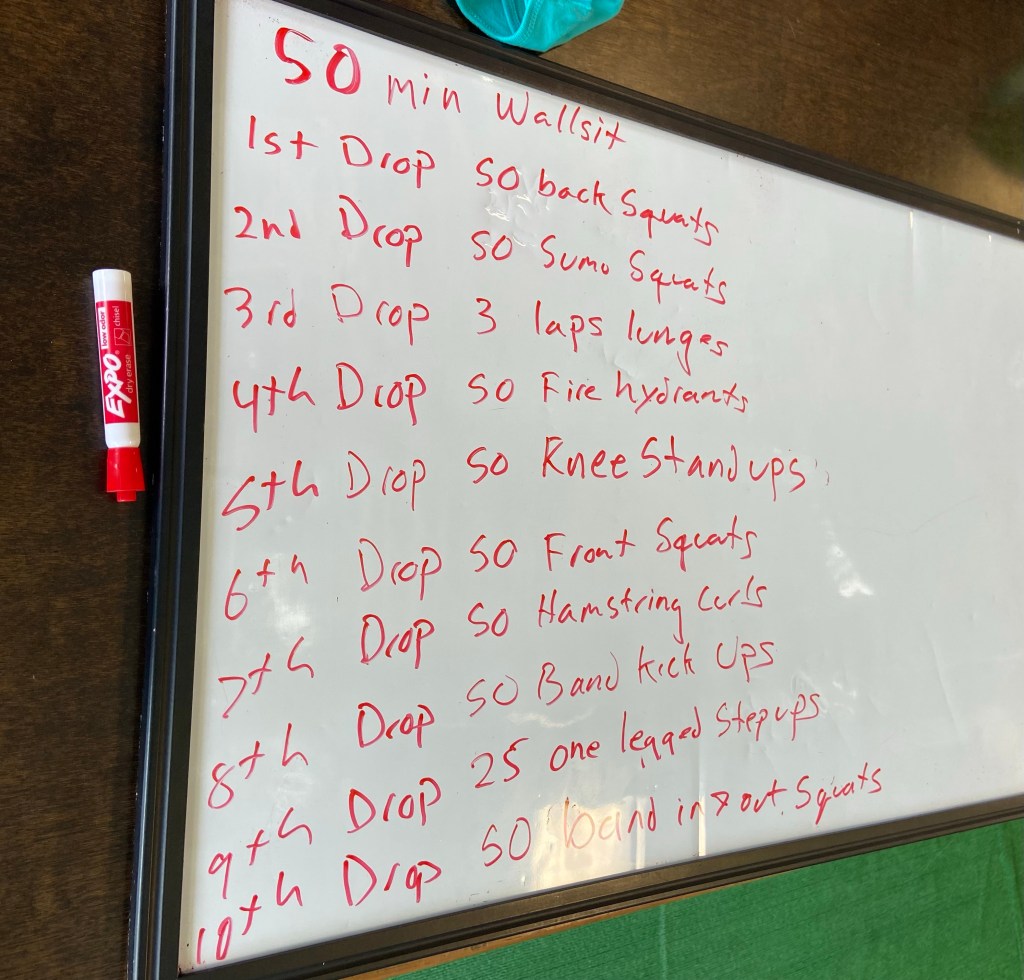 50 min Wallsit
1st Drop 50 back Squats
2nd Drop 50 Sumo Squats
3rd Drop 3 laps lunges
4th Drop 50 Fire hydrants
5th Drop 50 Knee Stand ups
6th Drop 50 Front Squats
7th Drop 50 Hamstring Curls
8th Drop 50 Band Kick Ups
9th Drop 25 one legged Step ups
10th Drop 50 band in & out Squats
EXPO
low odor
dry erase
chisel